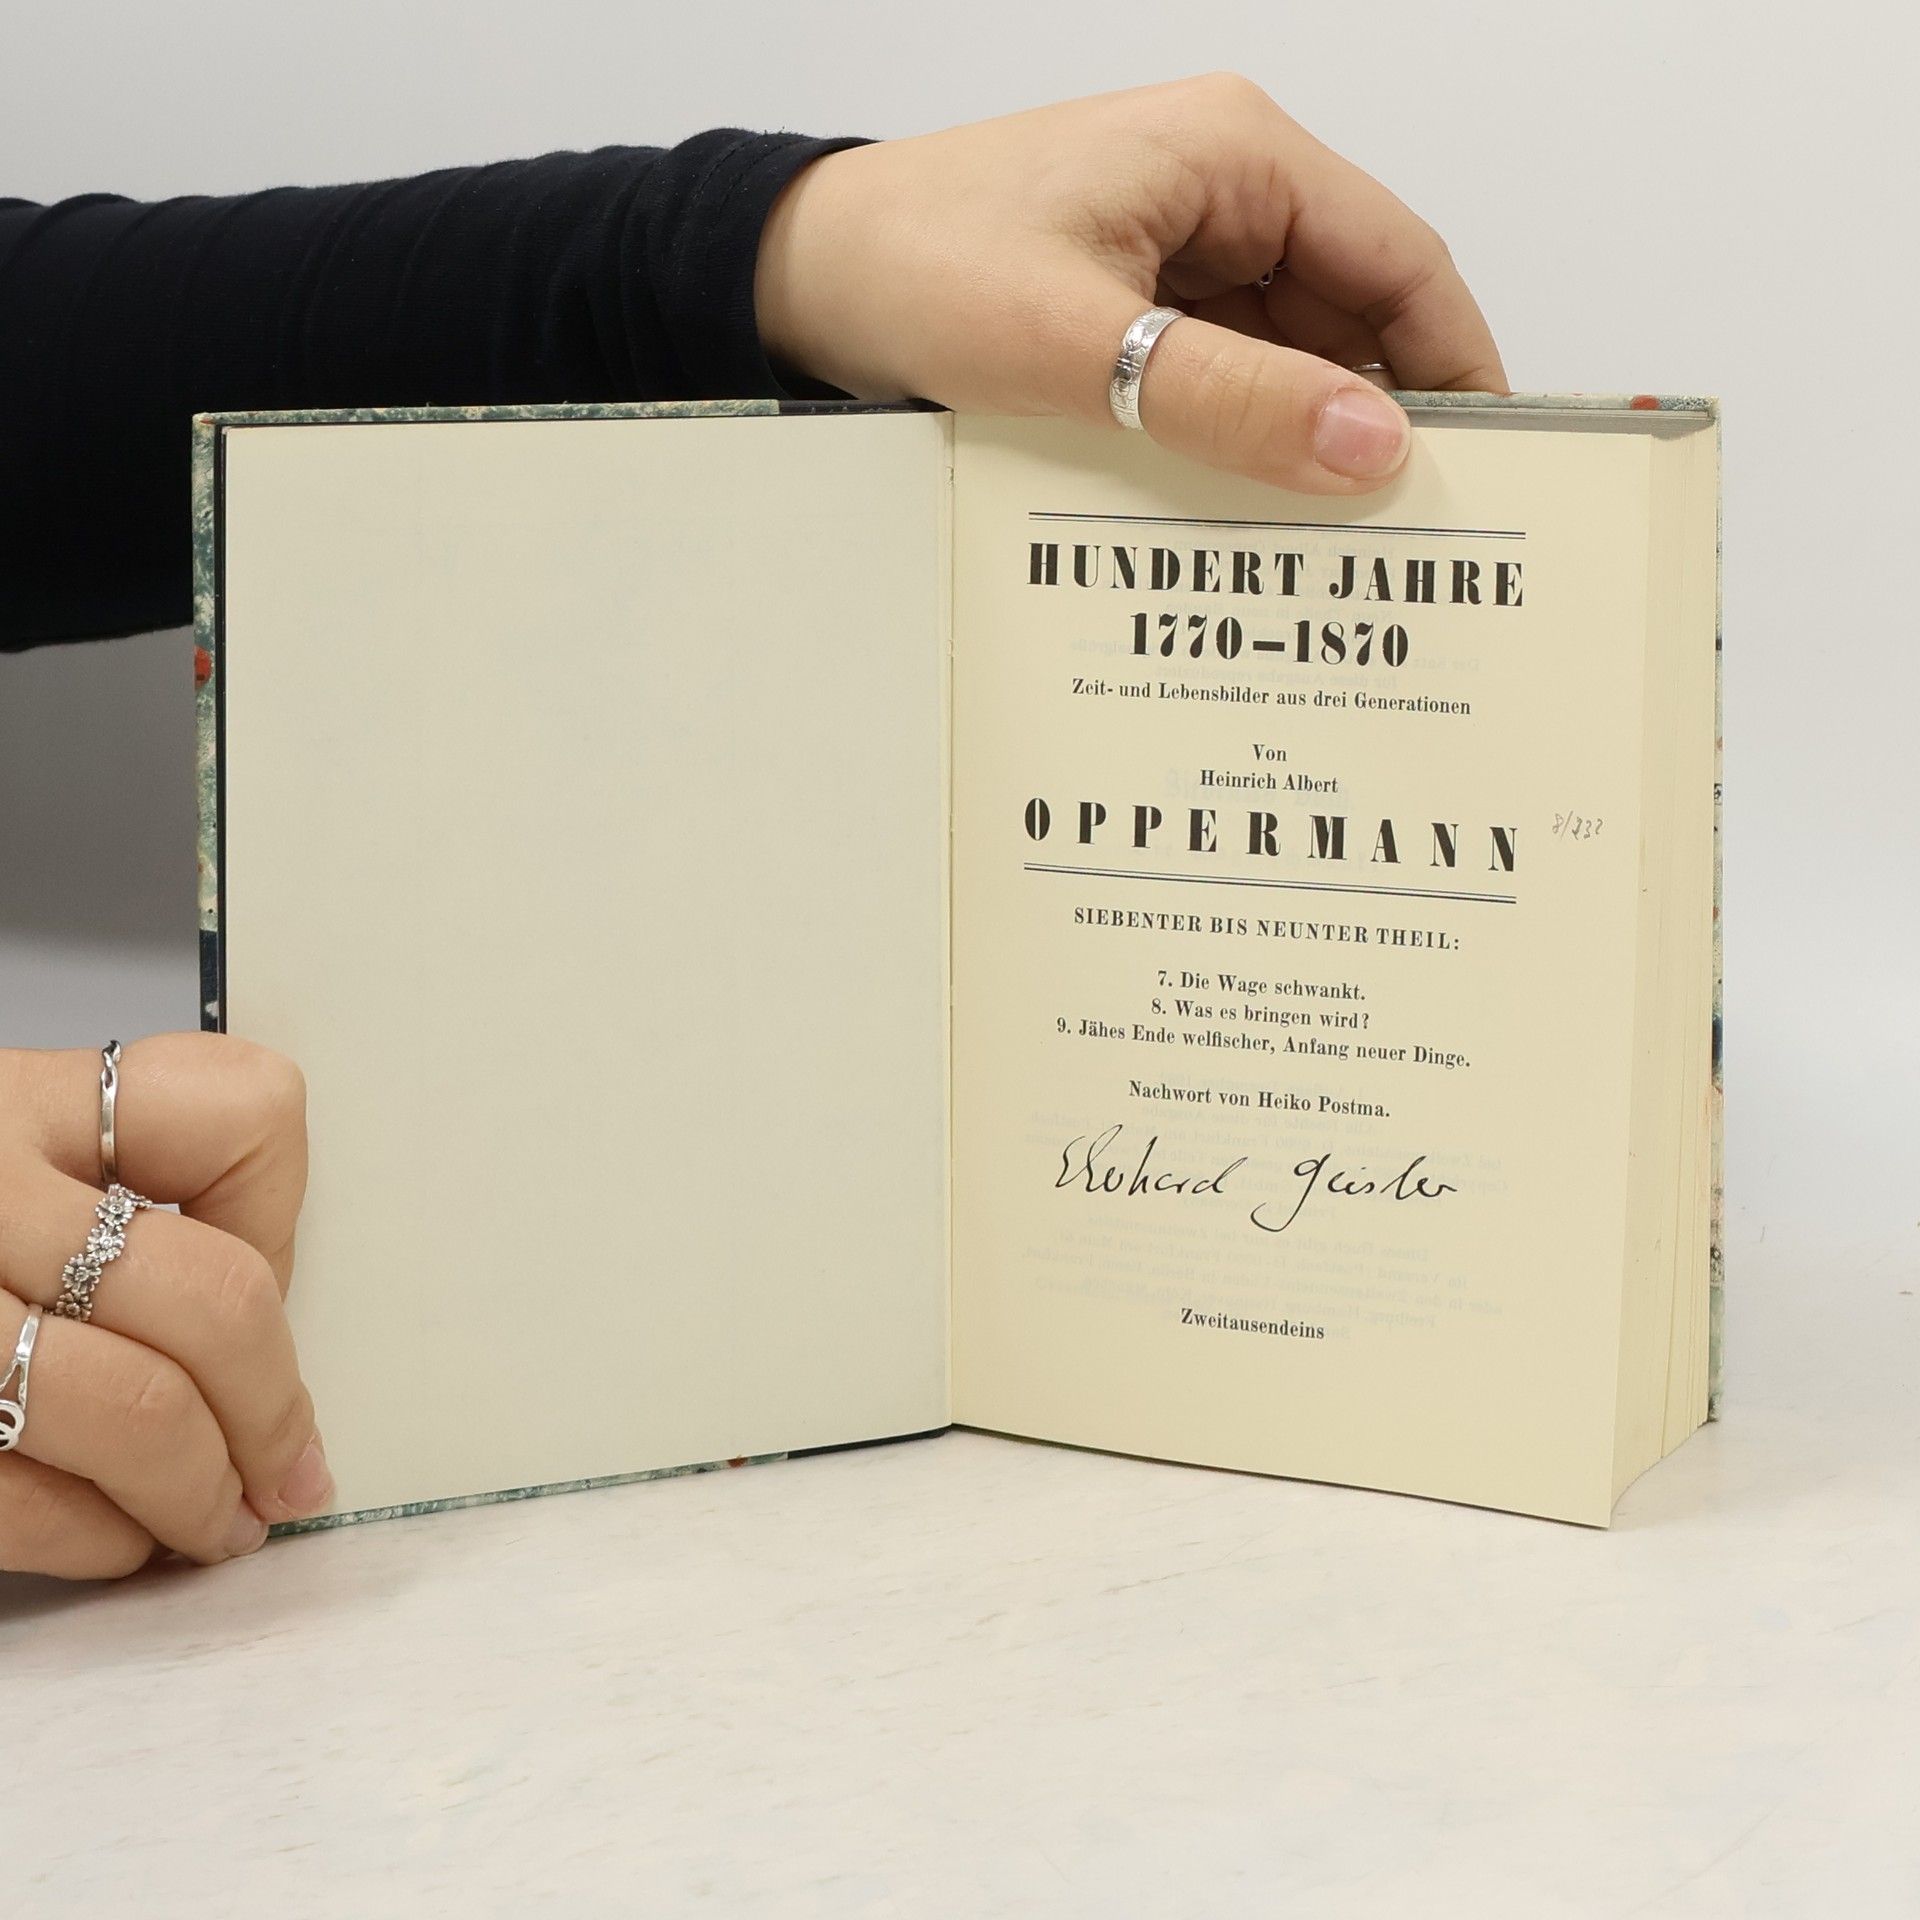 HUNDERT JAHRE
1770–1870
Zeit- und Lebensbilder aus drei Generationen
Von
Heinrich Albert
OPPERMANN
SIEBENTER BIS NEUNTER THEIL:
7. Die Wage schwankt.
8. Was es bringen wird?
9. Jähes Ende welfischer, Anfang neuer Dinge.
Nachwort von Heiko Postma.
Eberhard Geisler
Zweitausendeins